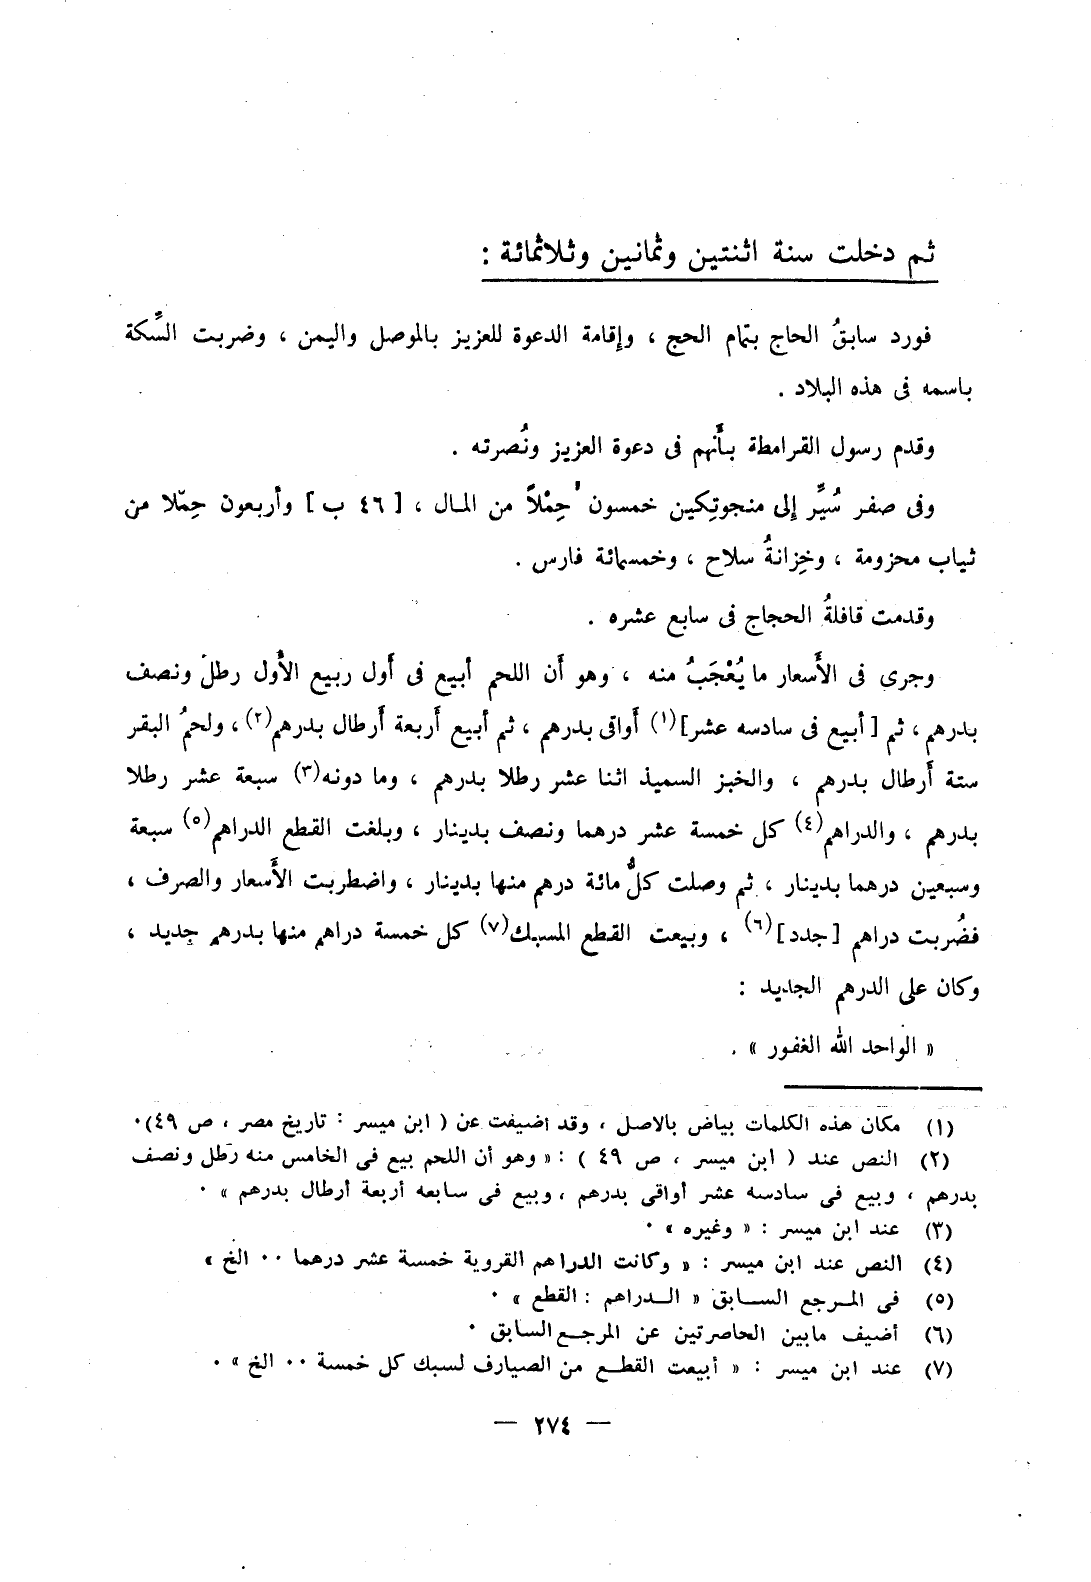 ثم دخلت سنة اثنتين وثمانين وثلاثمائة :
فورد سابقُ الحاج بتمام الحج ، وإقامة الدعوة للعزيز بالموصل واليمن ، وضربت السِّكة
باسمه فى هذه البلاد .
وقدم رسول القرامطة بأَنهم فى دعوة العزيز ونُصرته .
وفى صفر سُيِّر إلى منجوتِكين خمسون حِمْلاً من المال ، [ ٤٦ ب ] وأربعون حِمْلا من
ثياب محزومة ، وخِزانةُ سلاح ، وخمسمائة فارس .
وقدمت قافلةُ الحجاج فى سابع عشره .
وجرى فى الأَسعار ما يُعْجَبُ منه ، وهو أَن اللحم أبيع فى أَول ربيع الأُول رطل ونصف
بدرهم ، ثم [ أبيع فى سادسه عشر ](١) أَواقى بدرهم ، ثم أبيع أَربعة أَرطال بدرهم(٢) ، ولحمُ البقر
ستة أَرطال بدرهم ، والخبز السميذ اثنا عشر رطلا بدرهم ، وما دونه(٣) سبعة عشر رطلا
بدرهم ، والدراهم(٤) كل خمسة عشر درهما ونصف بدينار ، وبلغت القطع الدراهم(٥) سبعة
وسبعين درهما بدينار ، ثم وصلت كلُّ مائة درهم منها بدينار ، واضطربت الأَسعار والصرف ،
فضُربت دراهم [ جدد ](٦) ، وبيعت القطع المسبك(٧) كل خمسة دراهم منها بدرهم جديد ،
وكان على الدرهم الجديد :
« الواحد الله الغفور » .
(١) مكان هذه الكلمات بياض بالاصل ، وقد اضيفت عن ( ابن ميسر : تاريخ مصر ، ص ٤٩) .
(٢) النص عند ( ابن ميسر ، ص ٤٩ ) : « وهو أن اللحم بيع فى الخامس منه رطل ونصف
بدرهم ، وبيع فى سادسه عشر أواقى بدرهم ، وبيع فى سابعه أربعة أرطال بدرهم » .
(٣) عند ابن ميسر : « وغيره » .
(٤) النص عند ابن ميسر : « وكانت الدراهم القروية خمسة عشر درهما .. الخ »
(٥) فى المرجع السابق « الدراهم : القطع » .
(٦) أضيف مابين الحاصرتين عن المرجع السابق .
(٧) عند ابن ميسر : « أبيعت القطع من الصيارف لسبك كل خمسة .. الخ » .
— ٢٧٤ —